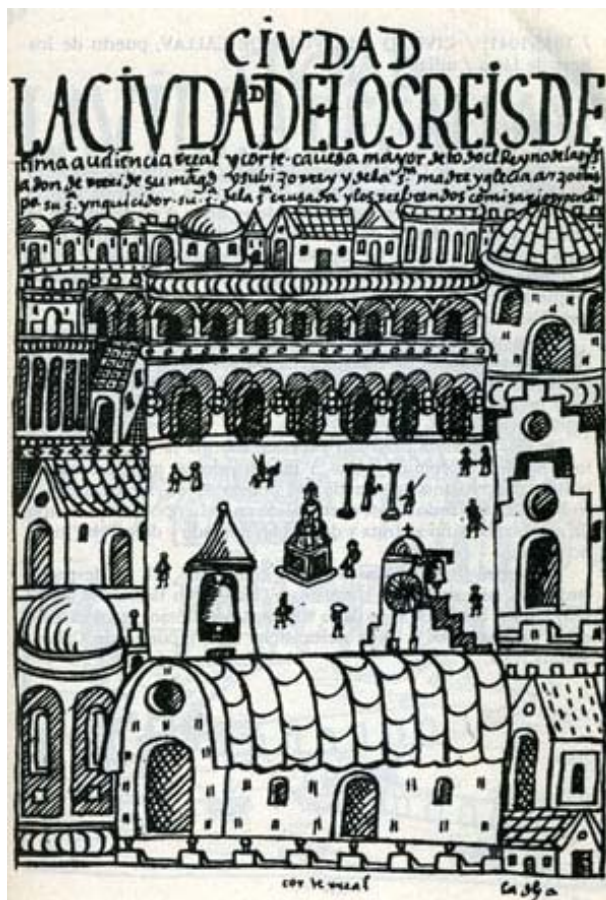 CIVDAD
LACIVDADDELOSREISDE
lima audiencia rreal y corte. cauesa mayor de todo el Reyno de las
a don de su mag.d y su bizorrey y de la s.ta madre yglecia
su s. ynquicidor. su s. de la s.ta crusada y los rreberendos comisarios
corte rreal